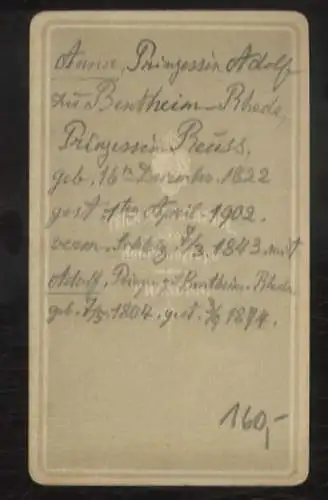 Anna, Prinzessin Adolf
zu Bentheim-Rheda,
Prinzessin Reuss.
geb. 16ten Dezembr. 1822
gest. 1ten April. 1902.
verm. Schleiz. 7/3 1843. mit
Adolf, Prinz z. Bentheim-Rheda
geb. 7/5. 1804. gest. 3/9 1874.
160,-